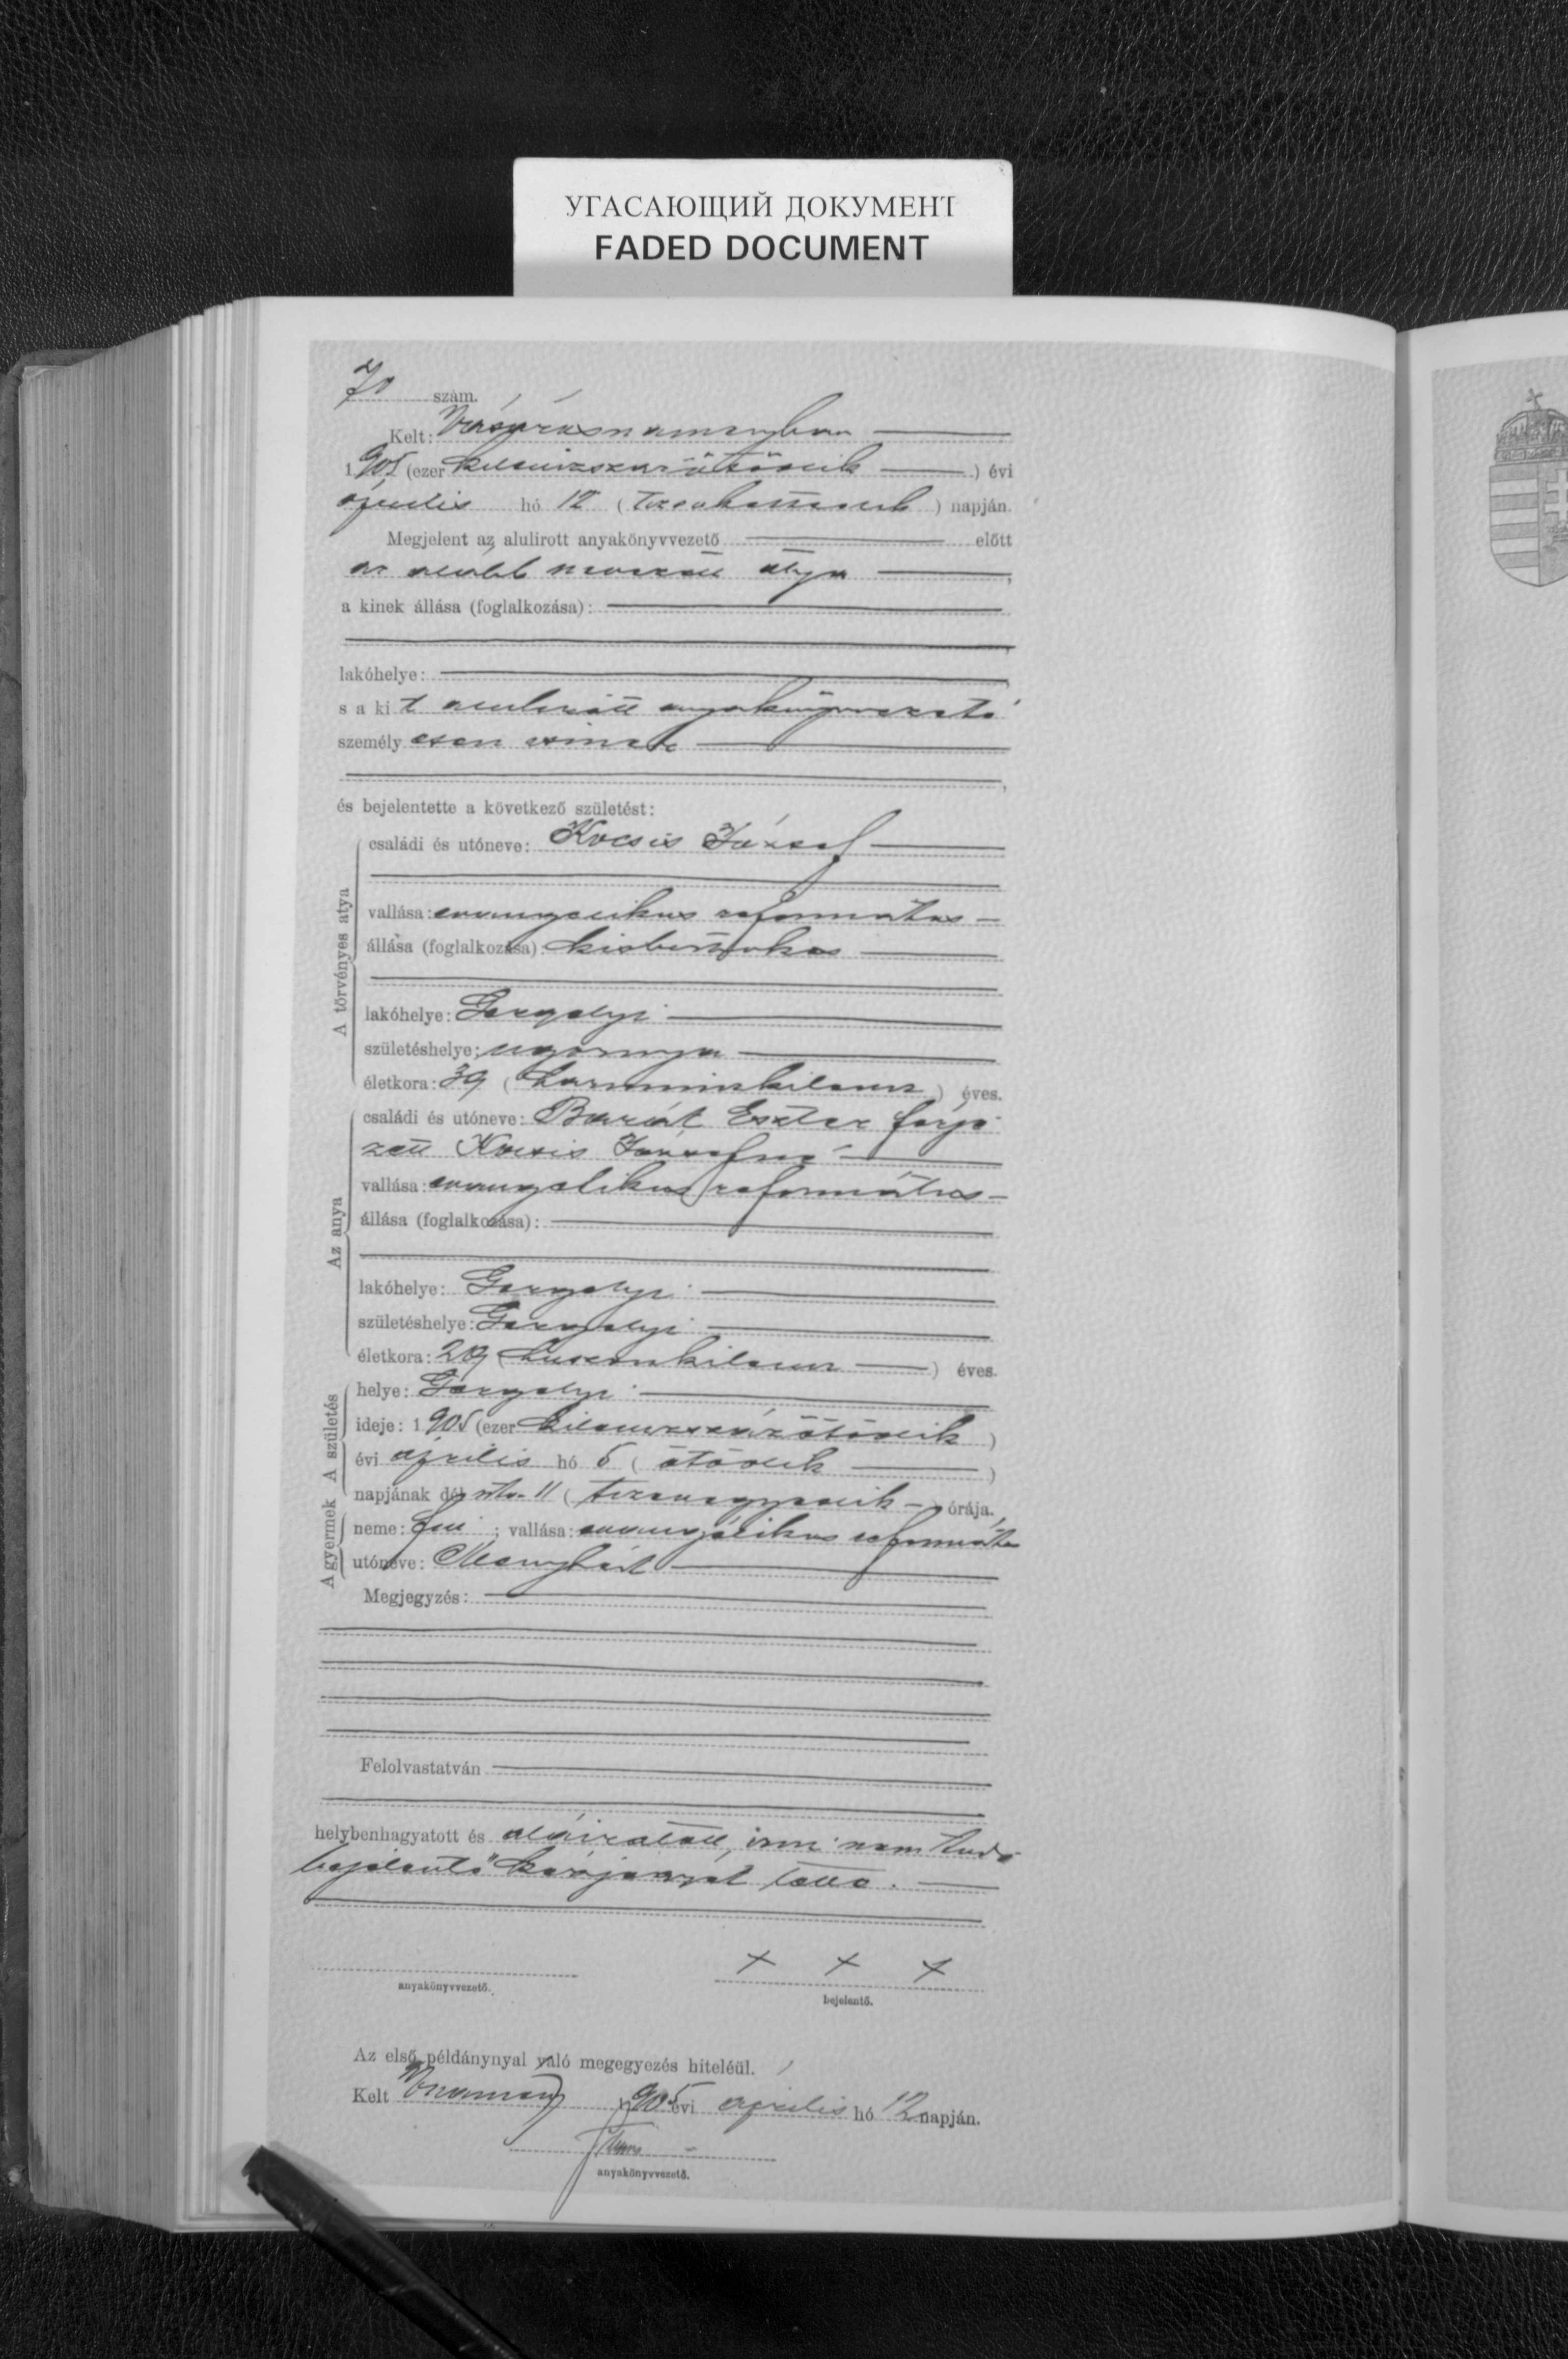 УГАСАЮЩИЙ ДОКУМЕНТ
FADED DOCUMENT
70 szám.
Kelt: Vásárosnaményban
1905 (ezer kilenczszázötödik ) évi
április hó 12 ( tizenkettedik ) napján.
Megjelent az alulirott anyakönyvvezető előtt
az alább nevezett atya ,
a kinek állása (foglalkozása):
lakóhelye: ,
s a kit alulirott anyakönyvvezető
személyesen ismer ,
és bejelentette a következő születést:
A törvényes atya
családi és utóneve: Kocsis József
vallása: evangelikus református
állása (foglalkozása): kisbirtokos
lakóhelye: Gergelyi
születéshelye: Ugornya
életkora: 39 ( harminczkilencz ) éves.
Az anya
családi és utóneve: Barát Eszter férje-
zett Kocsis Józsefné
vallása: evangelikus református
állása (foglalkozása):
lakóhelye: Gergelyi
születéshelye: Gergelyi
életkora: 29 ( huszonkilencz ) éves.
A gyermek A születés
helye: Gergelyi
ideje: 1905 (ezer kilenczszázötödik )
évi április hó 5 ( ötödik )
napjának dél 11 ( tizenegyedik ) órája.
neme: fiu ; vallása: evangélikus református
utóneve: Menyhért
Megjegyzés:
Felolvastatván
helybenhagyatott és aláiratott, irni nem tudó
bejelentő kézjegyét tette.
+ + +
anyakönyvvezető.
bejelentő.
Az első példánynyal való megegyezés hiteléül.
Kelt Vnamény 1905 évi április hó 12 napján.
anyakönyvvezető.